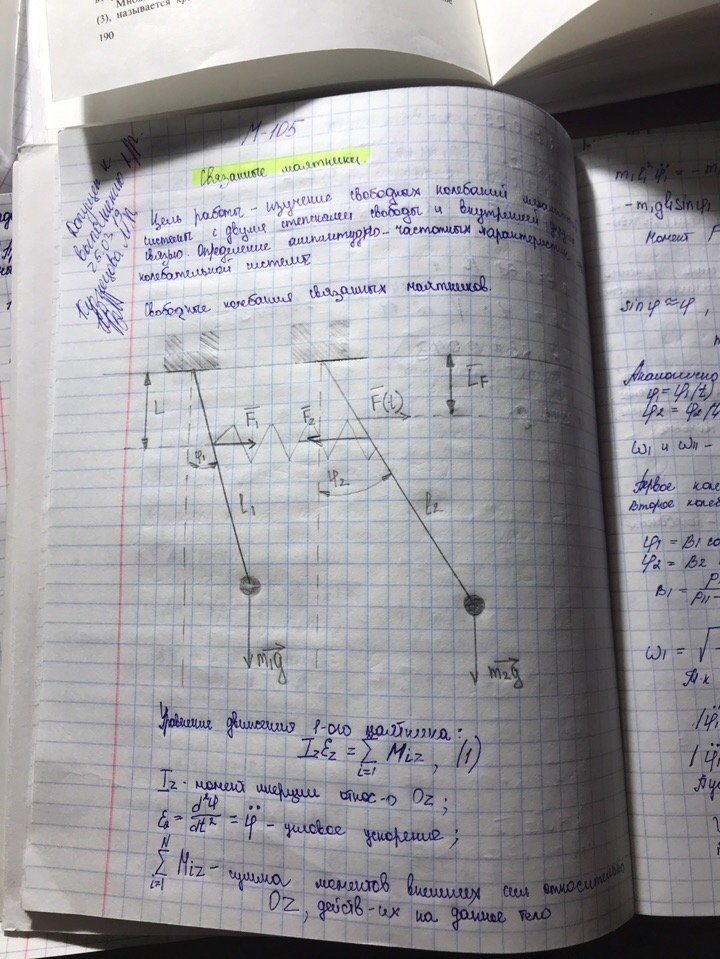 (3), называется
190
М-105
Связанные маятники.
Допущен к
выполнению л/р.
25.03.19
Кузнецова М.А
Цель работы - изучение свободных колебаний
системы с двумя степенями свободы и внутренней
связью. Определение амплитудно-частотных характеристик
колебательной системы
Свободные колебания связанных маятников.
L
F₁
F₂
F(t)
L_F
φ₁
φ₂
l₁
l₂
m₁g
m₂g
Уравнение движения 1-ого маятника:
I_z ε_z = Σ_{i=1} M_{iz}, (1)
I_z - момент инерции относ-о OZ;
ε_z = d²φ/dt² = φ̈ - угловое ускорение;
Σ_{i=1}^{N} M_{iz} - сумма моментов внешних сил относительно
OZ, действ-их на данное тело
m₁l₁²φ̈₁ = -m
-m₁gl₁sinφ₁
момент F
sinφ≈φ,
Аналогично
φ₁=φ₁(t)
φ₂=φ₂(t
ω_I и ω_II -
Первое коле
Второе колеб
φ₁ = B₁ co
φ₂ = B₂
B₁ =
ω₁ = √
Т.к